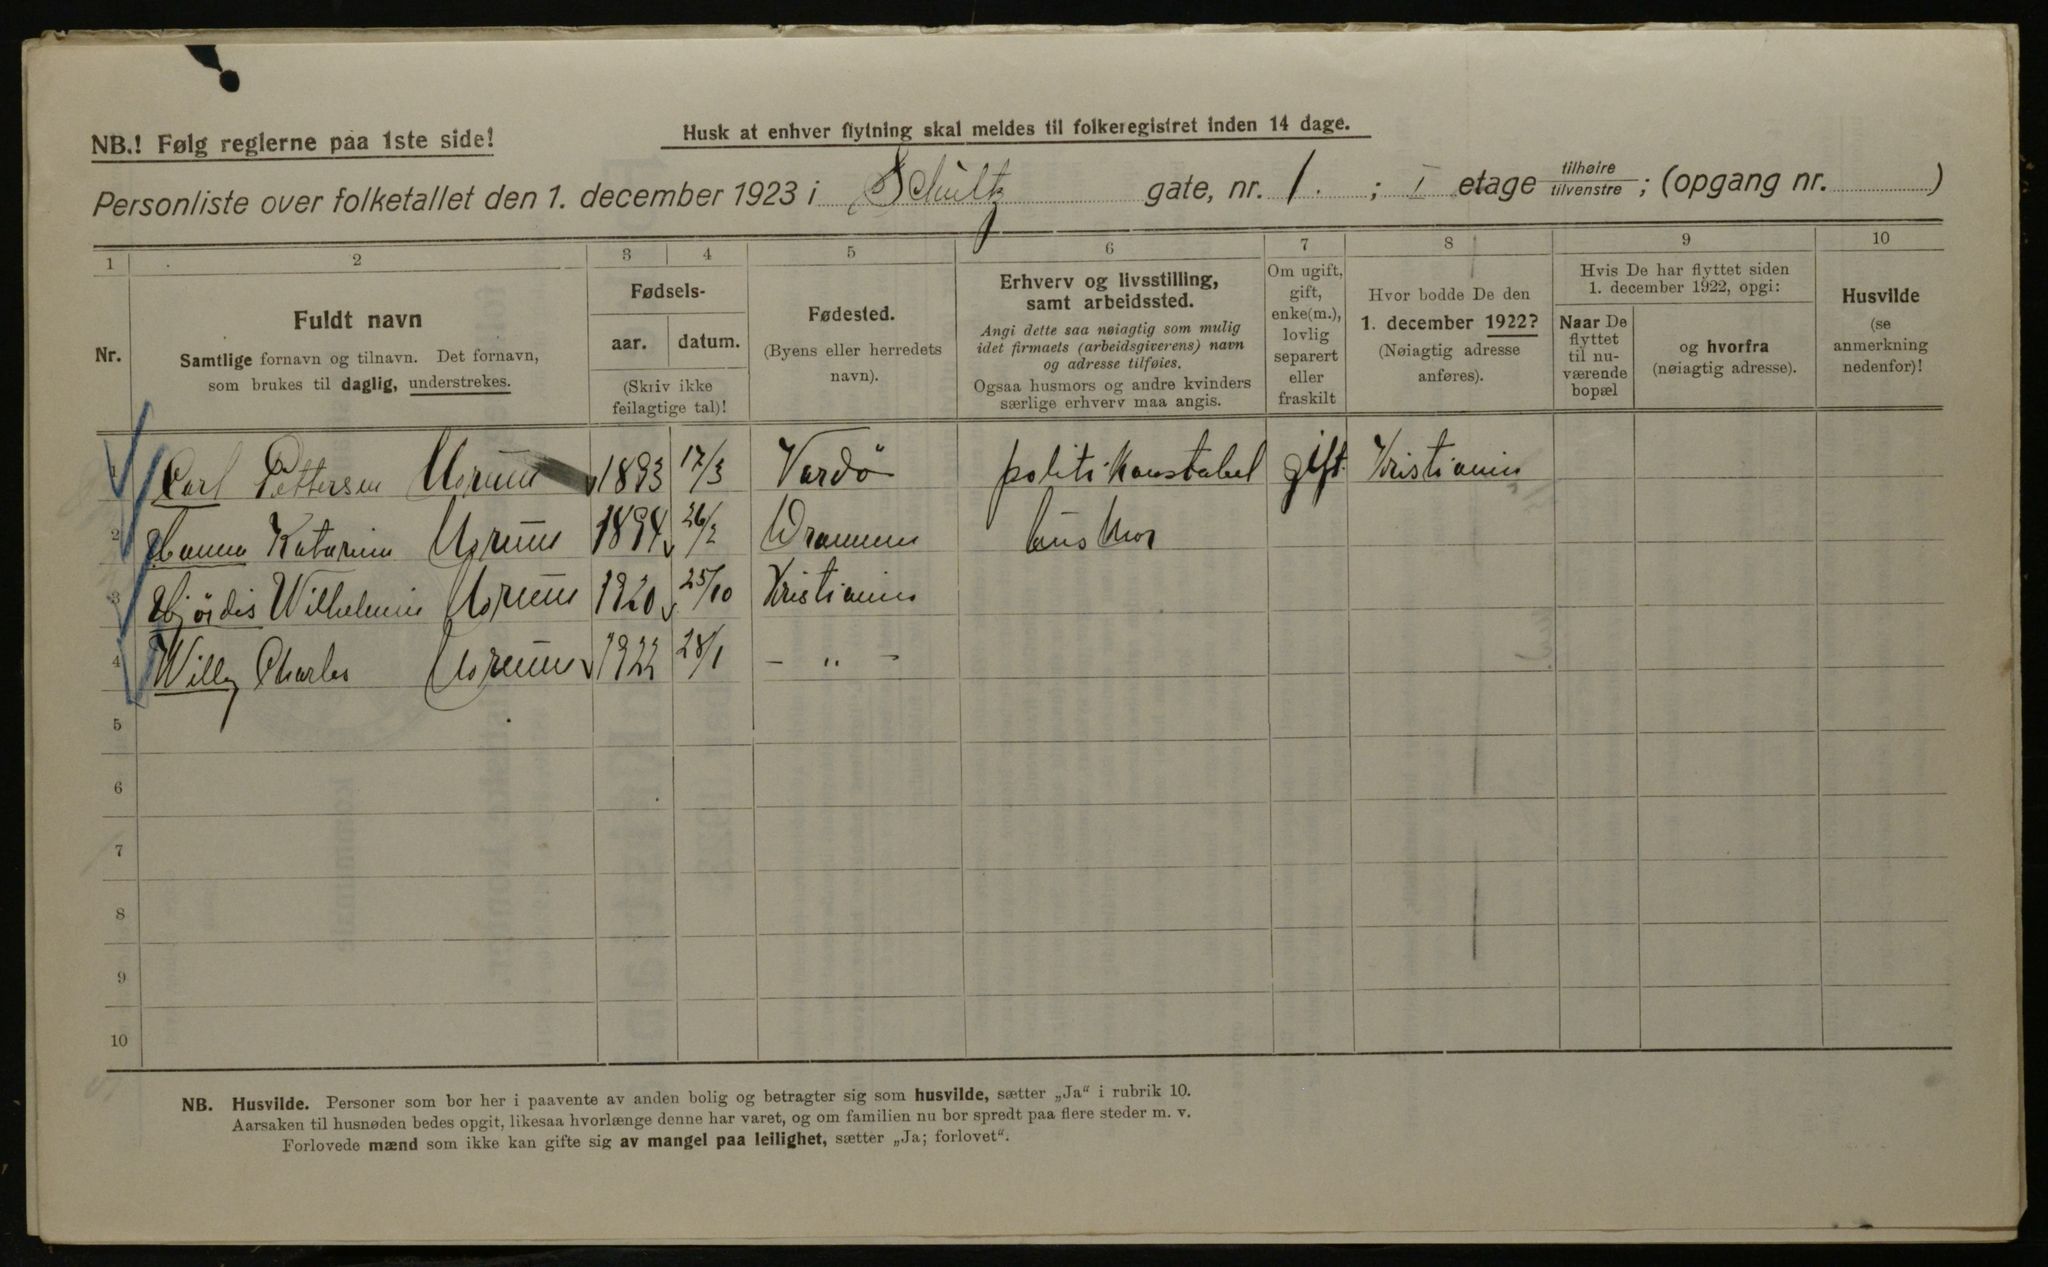 NB.! Følg reglerne paa 1ste side!
Husk at enhver flytning skal meldes til folkeregistret inden 14 dage.
Personliste over folketallet den 1. december 1923 i Schultz gate, nr. 1. ; I etage tilhøire tilvenstre ; (opgang nr. )
1 2 3 4 5 6 7 8 9 10
Nr.
Fuldt navn
Samtlige fornavn og tilnavn. Det fornavn,
som brukes til daglig, understrekes.
Fødsels-
aar. datum.
(Skriv ikke
feilagtige tal)!
Fødested.
(Byens eller herredets
navn).
Erhverv og livsstilling,
samt arbeidssted.
Angi dette saa nøiagtig som mulig
idet firmaets (arbeidsgiverens) navn
og adresse tilføies.
Ogsaa husmors og andre kvinders
særlige erhverv maa angis.
Om ugift,
gift,
enke(m.),
lovlig
separert
eller
fraskilt
Hvor bodde De den
1. december 1922?
(Nøiagtig adresse
anføres).
Hvis De har flyttet siden
1. december 1922, opgi:
Naar De
flyttet
til nu-
værende
bopæl
og hvorfra
(nøiagtig adresse).
Husvilde
(se
anmerkning
nedenfor)!
1 Carl Pettersen 1893 17/3 Vardö politikonstabel gift Kristiania
2 Hanna Katarina 1894 26/2 Drammen husmor
3 Hjördis Wilhelmine 1920 25/10 Kristiania
4 Willy Charles 1922 28/1 - " -
5
6
7
8
9
10
NB. Husvilde. Personer som bor her i paavente av anden bolig og betragter sig som husvilde, sætter „Ja“ i rubrik 10.
Aarsaken til husnøden bedes opgit, likesaa hvorlænge denne har varet, og om familien nu bor spredt paa flere steder m. v.
Forlovede mænd som ikke kan gifte sig av mangel paa leilighet, sætter „Ja; forlovet“.